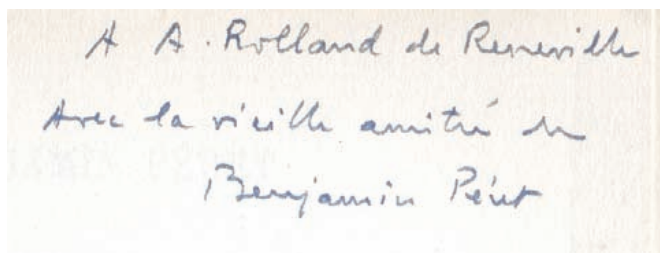 A A. Rolland de Reneville
Avec la vieille amitié de
Benjamin Péret